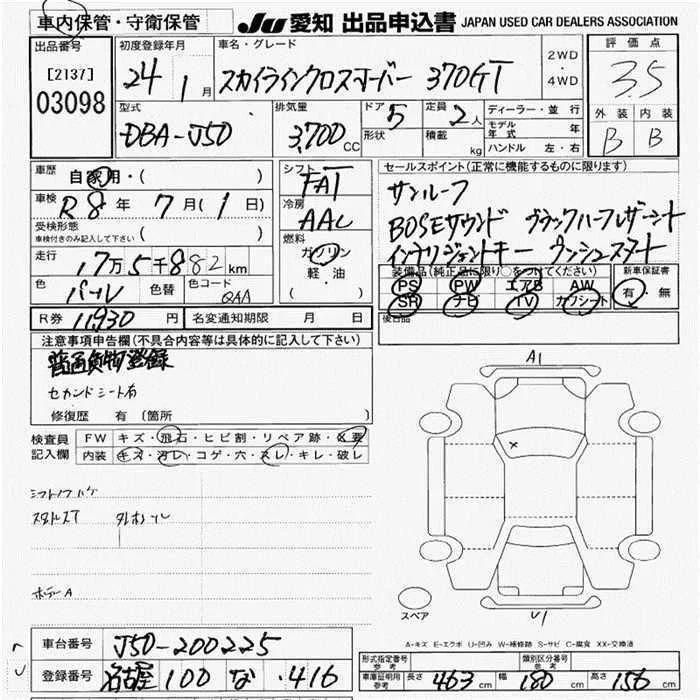 車内保管・守衛保管 JU 愛知 出品申込書 JAPAN USED CAR DEALERS ASSOCIATION
出品番号 初度登録年月 車名・グレード 評価点
[2137] 24 1月 スカイラインクロスオーバー 370GT 2WD・4WD 3.5
03098
型式 排気量 ドア 5 定員 2人 ディーラー・並行 外装 内装
DBA-J50 3,700CC 形状 積載 kg モデル年式 年 B B
ハンドル 左・右
車歴 自家用・( ) シフト FAT セールスポイント(正常に機能するものに限ります)
車検 R8年 7月(1日) 冷房 AAC サンルーフ
受検形態 BOSEサウンド ブラックハーフレザーシート
車検付きのみ記入して下さい ( ) 燃料 ガソリン インテリジェントキー プッシュスタート
走行 17万5千882km 軽・油 装備品(純正品に限り○をつけてください) 新車保証書
色 パール 色替 色コード QAA ( ) PS PW エアB AW 有・無
SR ナビ TV カワシート
R券 11930円 名変通知期限 月 日 後日品
注意事項申告欄(不具合内容等は具体的に記入して下さい)
普通貨物登録
セカンドシート有
修復歴 有 〔箇所 〕
A1
検査員 FW キズ・飛石・ヒビ割・リペア跡・X要
記入欄 内装 キズ・汚レ・コゲ・穴・スレ・キレ・破レ
シフトノブハゲ
ボデーA
スペア
U1
A-キズ E-エクボ U-凹み W-補修跡 S-サビ C-腐食 XX-交換済
車台番号 J50-200225
登録番号 名古屋 100 な ・416
形式指定番号 参考 類別区分番号 参考
車庫証明用 参考 長さ 463cm 幅 180cm 高さ 156cm